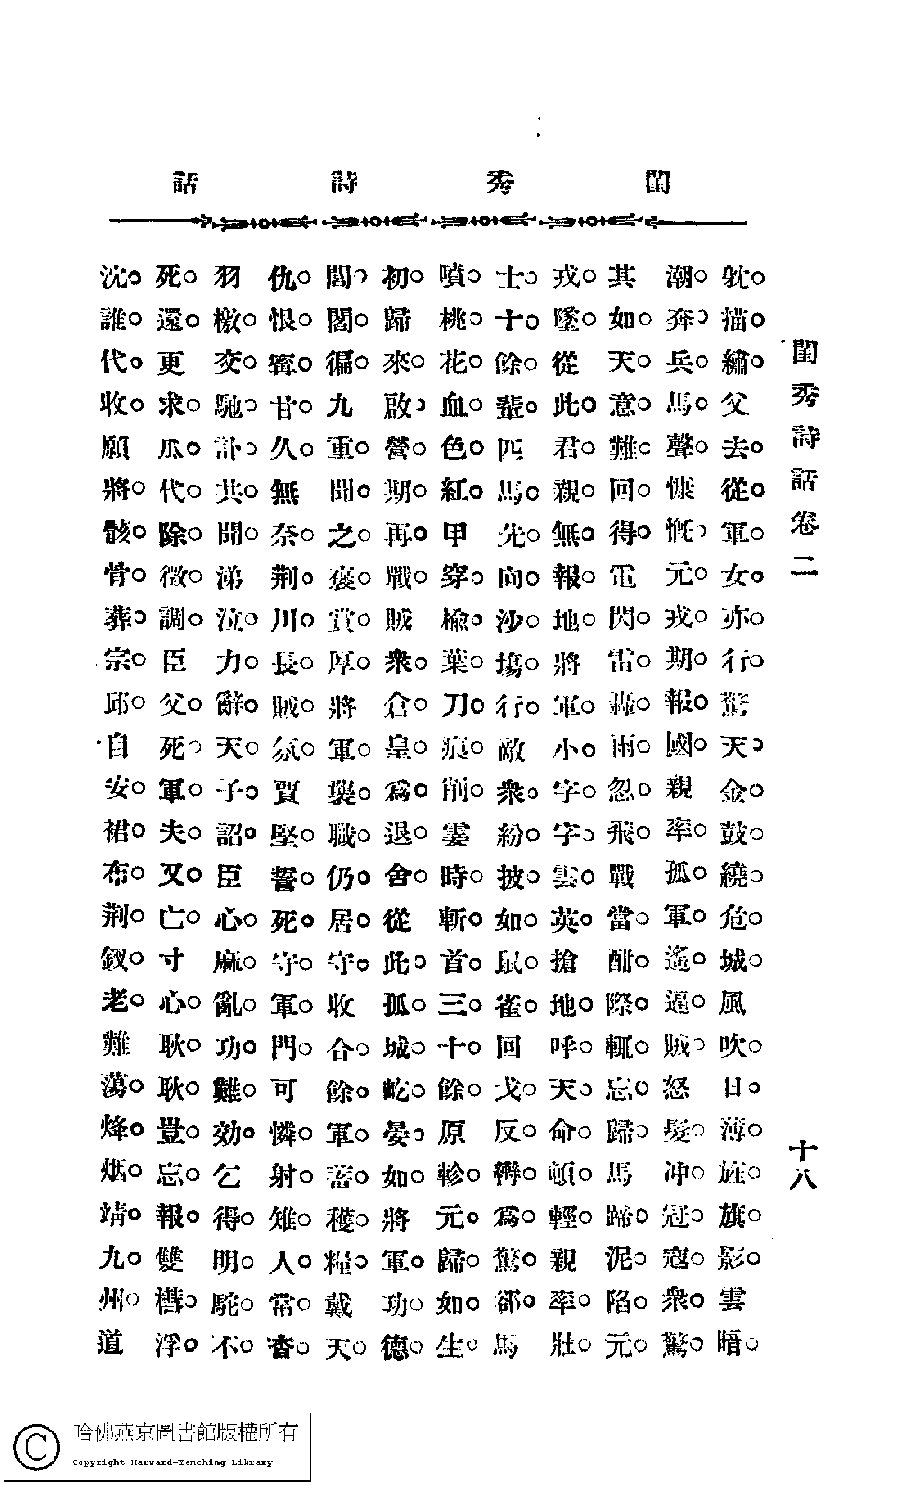 閨秀詩話
閨秀詩話卷二
十八
躭描繡父去從軍女亦行驚天金鼓繞危城風吹日薄旌旗影雲暗
潮奔兵馬聲慷慨元戎期報國親率孤軍遙逼賊怒髮冲冠寇衆驚
其如天意難回得電閃雷轟雨忽飛戰當酣際輒忘歸馬蹄泥陷元
戎墜從此君親無報地將軍小字字雲英搶地呼天命頓輕親率壯
士十餘輩匹馬先向沙塲行敵衆紛披如鼠雀回戈反轡爲驚郤馬
噴桃花血色紅甲穿楡葉刀痕削霎時斬首三十餘原軫元歸如生
初歸來啟營期再戰賊衆倉皇爲退舍從此孤城屹晏如將軍功德
閭閻徧九重聞之褒賞厚將軍襲職仍居守收合餘軍蓄穫糧戴天
仇恨寗甘久無奈荆川長賊氛賈堅誓死守軍門可憐射雉人常杳
羽檄交馳訃共聞涕泣力辭天子詔臣心麻亂功難効乞得明駝不
死還更求瓜代除徵調臣父死軍夫又亡寸心耿耿豈忘報雙槥浮
沈誰代收願將骸骨葬宗邱自安裙布荆釵老難蕩烽烟靖九州道
哈佛燕京圖書館版權所有
Copyright Harvard-Yenching Library